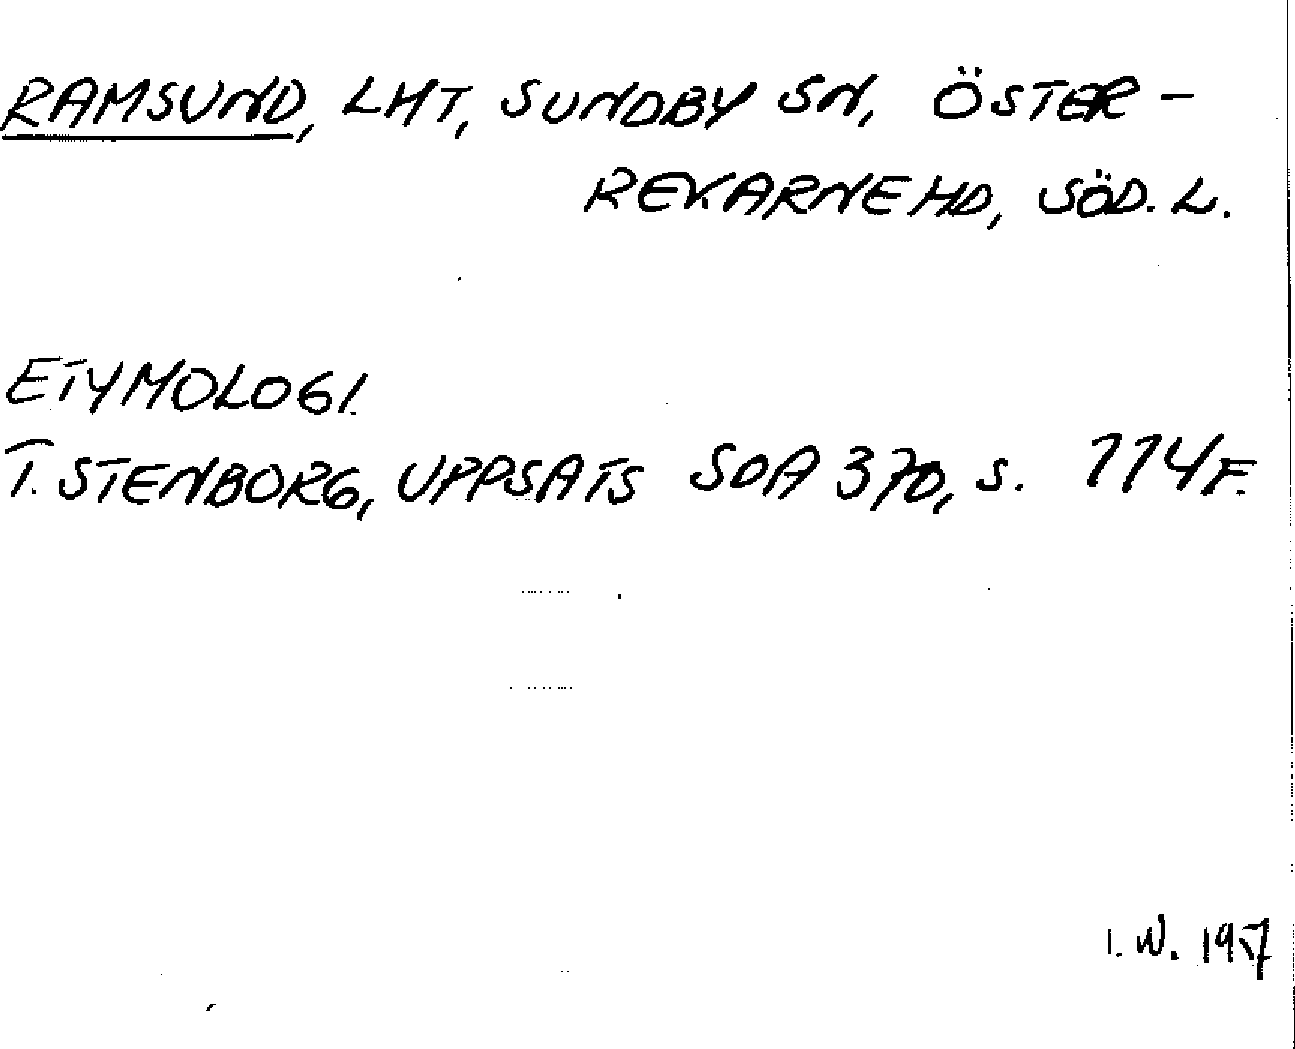 RAMSUND, LHT, SUNDBY SN, ÖSTER-
REKARNE HD, SÖD. L.
ETYMOLOGI.
T. STENBORG, UPPSATS SOA 370, S. 114 F.
I. W. 1957